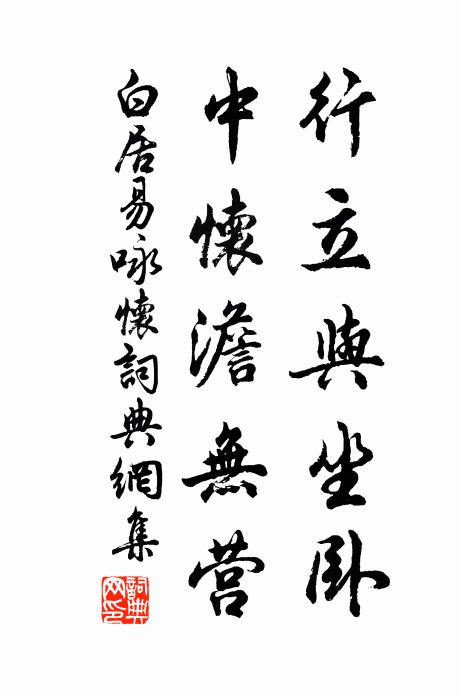 行立與坐卧
中懷澹無营
白居易咏懷詞典網集
詞典網印